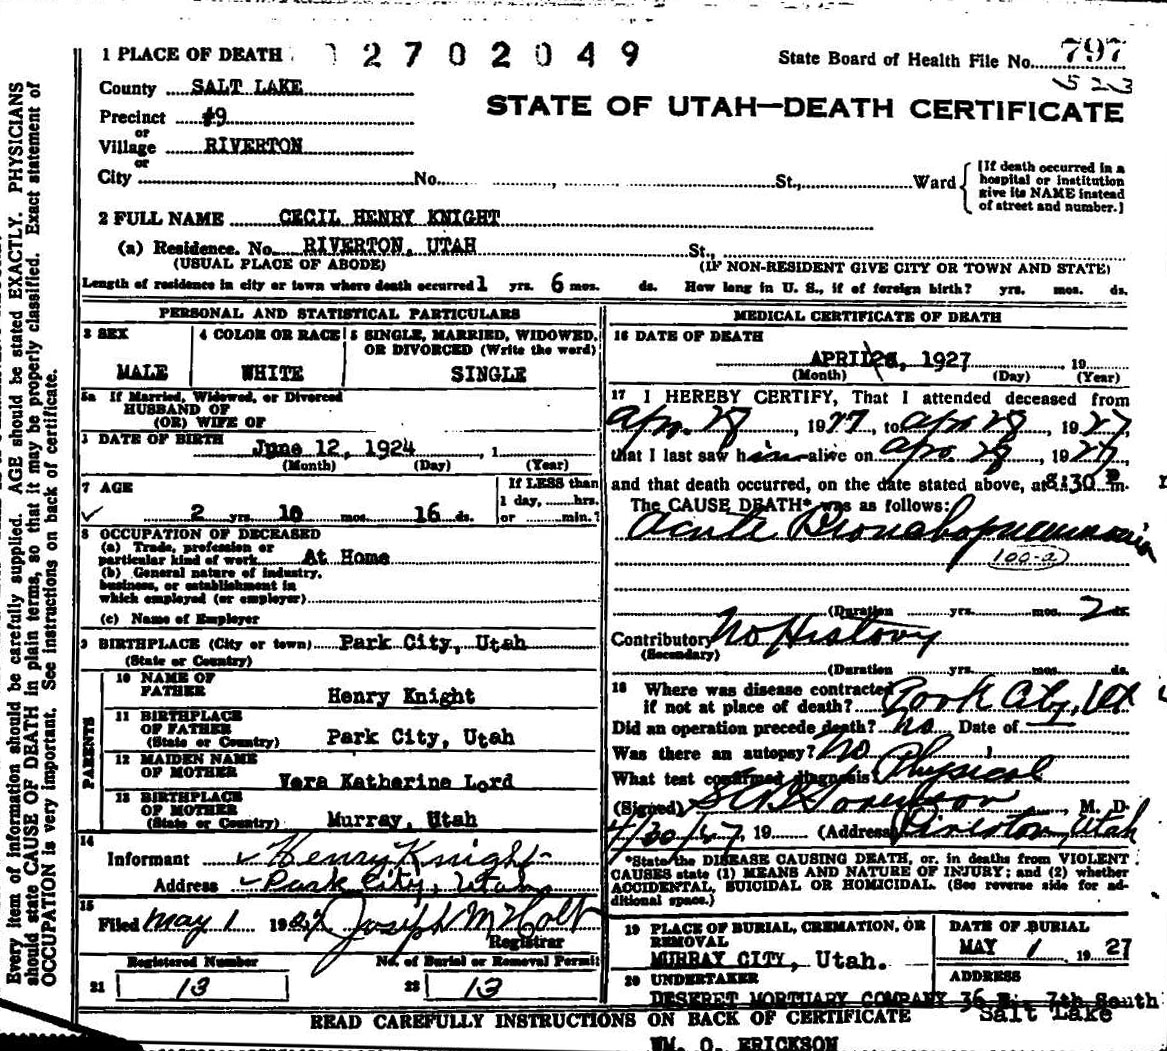 1 PLACE OF DEATH 2702049 State Board of Health File No. 797
523
County SALT LAKE
STATE OF UTAH—DEATH CERTIFICATE
Precinct #9
or
Village RIVERTON
or
City No. St., Ward
[If death occurred in a
hospital or institution
give its NAME instead
of street and number.]
2 FULL NAME CECIL HENRY KNIGHT
(a) Residence. No. RIVERTON, UTAH St.,
(USUAL PLACE OF ABODE) (IF NON-RESIDENT GIVE CITY OR TOWN AND STATE)
Length of residence in city or town where death occurred 1 yrs. 6 mos. ds. How long in U. S., if of foreign birth? yrs. mos. ds.
PERSONAL AND STATISTICAL PARTICULARS
3 SEX
MALE
4 COLOR OR RACE
WHITE
5 SINGLE, MARRIED, WIDOWED,
OR DIVORCED (Write the word)
SINGLE
5a If Married, Widowed, or Divorced
HUSBAND OF
(OR) WIFE OF
DATE OF BIRTH June 12, 1924, 1
(Month) (Day) (Year)
7 AGE
2 yrs. 10 mos. 16 ds.
If LESS than
1 day, hrs.
or min.?
8 OCCUPATION OF DECEASED
(a) Trade, profession or
particular kind of work At Home
(b) General nature of industry,
business, or establishment in
which employed (or employer)
(c) Name of Employer
9 BIRTHPLACE (City or town) Park City, Utah
(State or Country)
PARENTS
10 NAME OF
FATHER Henry Knight
11 BIRTHPLACE
OF FATHER
(State or Country) Park City, Utah
12 MAIDEN NAME
OF MOTHER Vera Katherine Lord
13 BIRTHPLACE
OF MOTHER
(State or Country) Murray, Utah
14
Informant Henry Knight
Address Park City, Utah
15
Filed May 1 1927 Joseph M Holt
Registrar
Registered Number No. of Burial or Removal Permit
21 13 22 13
MEDICAL CERTIFICATE OF DEATH
16 DATE OF DEATH
APRIL 28, 1927 19
(Month) (Day) (Year)
17 I HEREBY CERTIFY, That I attended deceased from
Apr. 28, 1927, to Apr 28, 1927,
that I last saw him alive on Apr 28, 1927,
and that death occurred, on the date stated above, at 8:30 P m.
The CAUSE DEATH* was as follows:
Acute Bronchopneumonia
100-a
(Duration yrs. mos. 2 ds.
Contributory No History
(Secondary)
(Duration yrs. mos. ds.
18 Where was disease contracted
if not at place of death? Park City, Ut
Did an operation precede death? no Date of
Was there an autopsy? No
What test confirmed diagnosis? Physical
(Signed) M. D.
4/30/27 19 (Address) Riverton, Utah
*State the DISEASE CAUSING DEATH, or, in deaths from VIOLENT
CAUSES state (1) MEANS AND NATURE OF INJURY; and (2) whether
ACCIDENTAL, SUICIDAL OR HOMICIDAL. (See reverse side for ad-
ditional space.)
19 PLACE OF BURIAL, CREMATION, OR
REMOVAL
MURRAY CITY, Utah.
DATE OF BURIAL
MAY 1 1927
20 UNDERTAKER
DESERET MORTUARY COMPANY
ADDRESS
36 E. 7th South
Salt Lake
READ CAREFULLY INSTRUCTIONS ON BACK OF CERTIFICATE
WM. O. ERICKSON
Every item of information should be carefully supplied. AGE should be stated EXACTLY. PHYSICIANS
should state CAUSE OF DEATH in plain terms, so that it may be properly classified. Exact statement of
OCCUPATION is very important. See instructions on back of certificate.